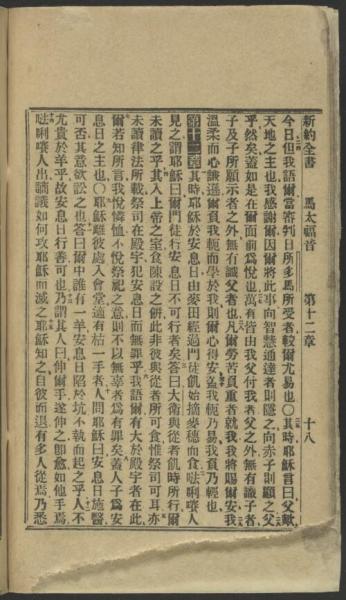 新約全書　馬太福音　第十二章　十八
今日但我語爾當審判日所多馬所受者較爾尤易也〇其時耶穌言曰父歟
天地之主也我感謝爾因爾將此事向智慧通達者則隱之向赤子則顯之父
乎然矣蓋如是在爾面前爲悅也萬有皆由我父付我者父之外無有識子者
子及子所願示者之外無有識父者也凡爾勞苦負重者就我我將賜爾安我
溫柔而心謙遜爾負我軛而學於我則爾心得安蓋我軛乃易我負乃輕也
第十二章其時耶穌於安息日由麥田經過門徒飢始摘麥穗而食㗲唎㘔人
見之謂耶穌曰爾門徒行安息日不可行者矣答曰大衛與從者飢時所行爾
未讀之乎其入上帝之室食陳設之餅此非彼與從者所可食惟祭司可耳亦
未讀律法所載祭司在殿宇犯安息日而無罪乎我語爾有大於殿宇者在此
爾若知所言我悅憐恤不悅祭祀之意則不以無辜者爲有罪矣蓋人子爲安
息日之主也〇耶穌離彼處入會堂適有枯一手者人問耶穌曰安息日施醫
可否其意欲訟之也答曰爾中誰有一羊安息日陷於坑不執而起之乎人不
尤貴於羊乎故安息日行善可也乃謂其人曰伸爾手遂伸之卽愈如他手焉
㗲唎㘔人出議如何攻耶穌而滅之耶穌知之自彼而退有多人從焉乃悉